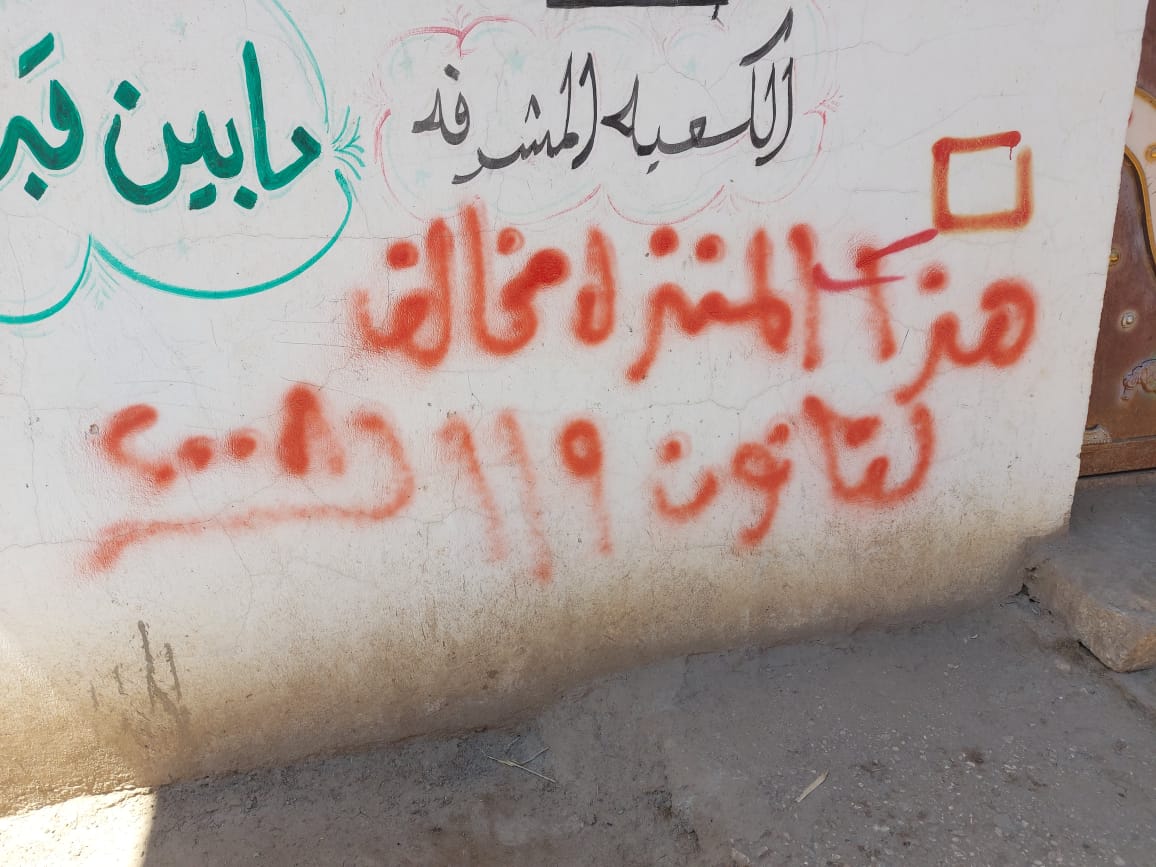 الكعبه المشرفه
مابين
هذا المنزل مخالف
لقانون ١١٩ لسنة ٢٠٠٨